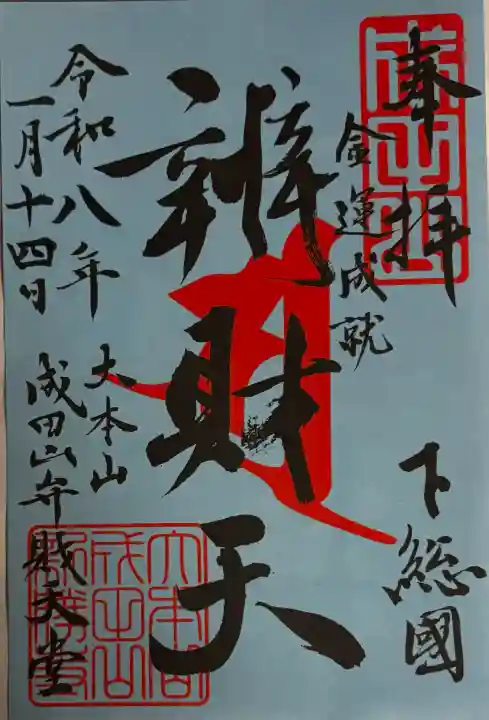 奉拝
金運成就
下総國
辨財天
大本山
成田山弁財天堂
令和八年
一月十四日